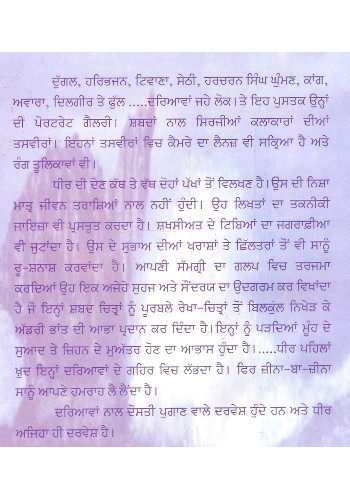 ਦੁੱਗਲ, ਹਰਿਭਜਨ, ਟਿਵਾਣਾ, ਸੇਠੀ, ਹਰਚਰਨ ਸਿੰਘ ਘੁੰਮਣ, ਕਾਂਗ,
ਅਵਾਰਾ, ਦਿਲਗੀਰ ਤੇ ਫੁੱਲ .....ਦਰਿਆਵਾਂ ਜਹੇ ਲੋਕ।ਤੇ ਇਹ ਪੁਸਤਕ ਉਨ੍ਹਾਂ
ਦੀ ਪੋਰਟਰੇਟ ਗੈਲਰੀ। ਸ਼ਬਦਾਂ ਨਾਲ ਸਿਰਜੀਆਂ ਕਲਾਕਾਰਾਂ ਦੀਆਂ
ਤਸਵੀਰਾਂ। ਇਹਨਾਂ ਤਸਵੀਰਾਂ ਵਿਚ ਕੈਮਰੇ ਦਾ ਲੈਨਜ਼ ਵੀ ਸਕ੍ਰਿਆ ਹੈ ਅਤੇ
ਰੰਗ ਤੂਲਿਕਾਵਾਂ ਵੀ।
ਧੀਰ ਦੀ ਦੇਣ ਕੱਥ ਤੇ ਵੱਥ ਦੋਹਾਂ ਪੱਖਾਂ ਤੋਂ ਵਿਲਖਣ ਹੈ।ਉਸ ਦੀ ਨਿਸ਼ਾ
ਮਾਤ੍ਰ ਜੀਵਨ ਤਰਾਸ਼ਿਆਂ ਨਾਲ ਨਹੀਂ ਹੁੰਦੀ। ਉਹ ਲਿਖਤਾਂ ਦਾ ਤਕਨੀਕੀ
ਜਾਇਜ਼ਾ ਵੀ ਪ੍ਰਸਤੁਤ ਕਰਦਾ ਹੈ। ਸ਼ਖਸੀਅਤ ਦੇ ਟਿਬਿਆਂ ਦਾ ਜਗਰਾਫ਼ੀਆ
ਵੀ ਜੁਟਾਂਦਾ ਹੈ। ਉਸ ਦੇ ਸੁਭਾਅ ਦੀਆਂ ਖਰਾਸ਼ਾਂ ਤੇ ਛਿੱਲਤਰਾਂ ਤੋਂ ਵੀ ਸਾਨੂੰ
ਰੂ-ਸ਼ਨਾਸ਼ ਕਰਵਾਂਦਾ ਹੈ। ਆਪਣੀ ਸੱਮਗ੍ਰੀ ਦਾ ਗਲਪ ਵਿਚ ਤਰਜਮਾ
ਕਰਦਿਆਂ ਉਹ ਇਕ ਅਜੇਹੇ ਸੁਹਜ ਅਤੇ ਸੌਂਦਰਯ ਦਾ ਉਦਗਰਮ ਕਰ ਵਿਖਾਂਦਾ
ਹੈ ਜੋ ਇਨ੍ਹਾਂ ਸ਼ਬਦ ਚਿਤ੍ਰਾਂ ਨੂੰ ਪੂਰਬਲੇ ਰੇਖਾ-ਚਿਤ੍ਰਾਂ ਤੋਂ ਬਿਲਕੁੱਲ ਨਿਖੇੜ ਕੇ
ਅੱਡਰੀ ਭਾਂਤ ਦੀ ਆਭਾ ਪ੍ਰਦਾਨ ਕਰ ਦਿੰਦਾ ਹੈ। ਇਨ੍ਹਾਂ ਨੂੰ ਪੜਦਿਆਂ ਮੂੰਹ ਦੇ
ਸੁਆਦ ਤੇ ਜ਼ਿਹਨ ਦੇ ਮੁਅੱਤਰ ਹੋਣ ਦਾ ਆਭਾਸ ਹੁੰਦਾ ਹੈ।.....ਧੀਰ ਪਹਿਲਾਂ
ਖ਼ੁਦ ਇਨ੍ਹਾਂ ਦਰਿਆਵਾਂ ਦੇ ਗਹਿਰ ਵਿਚ ਲੱਭਦਾ ਹੈ। ਫਿਰ ਜ਼ੀਨਾ-ਬਾ-ਜ਼ੀਨਾ
ਸਾਨੂੰ ਆਪਣੇ ਹਮਰਾਹ ਲੈ ਲੈਂਦਾ ਹੈ।
ਦਰਿਆਵਾਂ ਨਾਲ ਦੋਸਤੀ ਪੁਗਾਣ ਵਾਲੇ ਦਰਵੇਸ਼ ਹੁੰਦੇ ਹਨ ਅਤੇ ਧੀਰ
ਅਜਿਹਾ ਹੀ ਦਰਵੇਸ਼ ਹੈ।